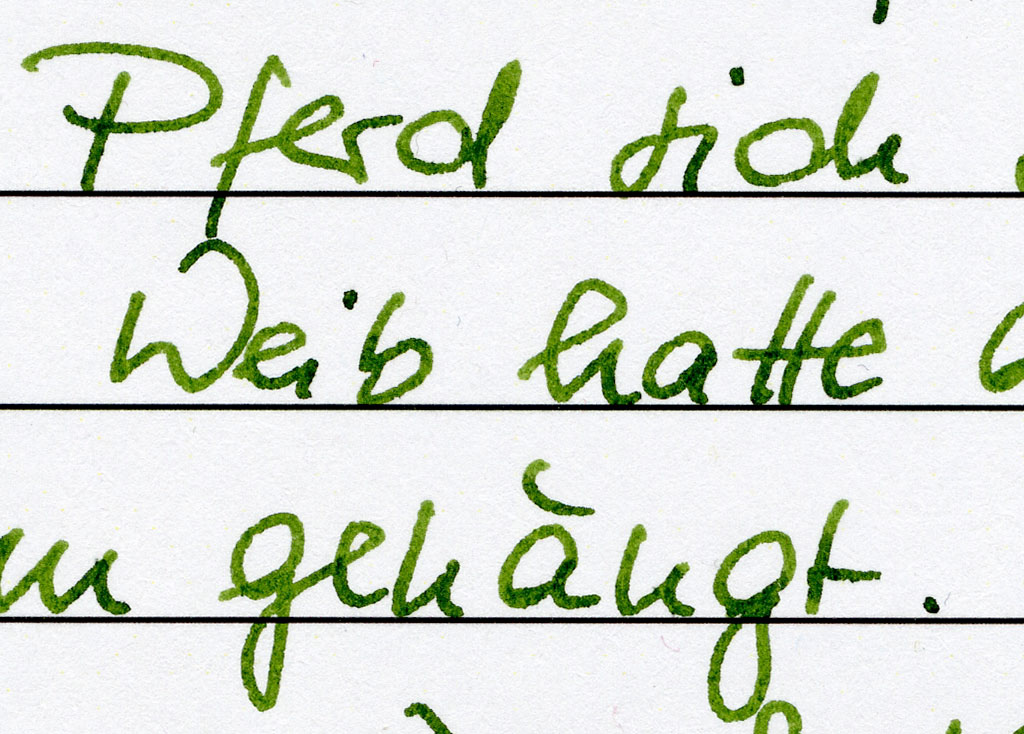 Pferd sich
Weib hatte
gehängt.